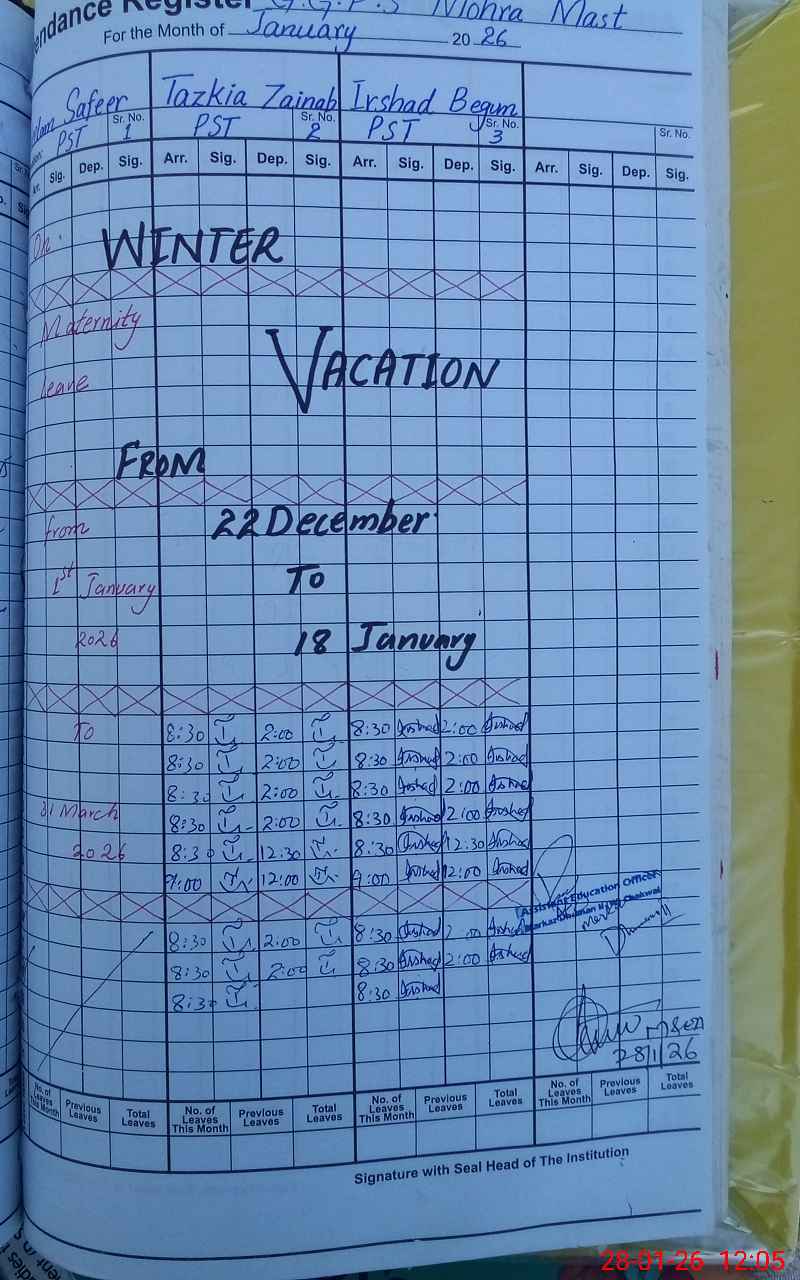 endance Register G.G.P.S Mohra Mast
For the Month of January 2026
Safeer Tazkia Zainab Irshad Begum
PST Sr. No. 1 PST Sr. No. 2 PST Sr. No. 3 Sr. No.
Arr. Sig. Dep. Sig. Arr. Sig. Dep. Sig. Arr. Sig. Dep. Sig. Arr. Sig. Dep. Sig.
On WINTER
Maternity
VACATION
leave
FROM
from 22 December
1st January TO
2026 18 January
To 8:30 2:00 8:30 Irshad 2:00 Irshad
8:30 2:00 8:30 Irshad 2:00 Irshad
8:30 2:00 8:30 Irshad 2:00 Irshad
31 March 8:30 2:00 8:30 Irshad 2:00 Irshad
2026 8:30 12:30 8:30 Irshad 12:30 Irshad
9:00 12:00 9:00 Irshad 12:00 Irshad
Assistant Education Officer
8:30 2:00 8:30 Irshad 2:00 Irshad
8:30 2:00 8:30 Irshad 2:00 Irshad
8:30 8:30 Irshad
28/1/26
No. of Leaves This Month Previous Leaves Total Leaves No. of Leaves This Month Previous Leaves Total Leaves No. of Leaves This Month Previous Leaves Total Leaves No. of Leaves This Month Previous Leaves Total Leaves
Signature with Seal Head of The Institution
28-01-26 12:05